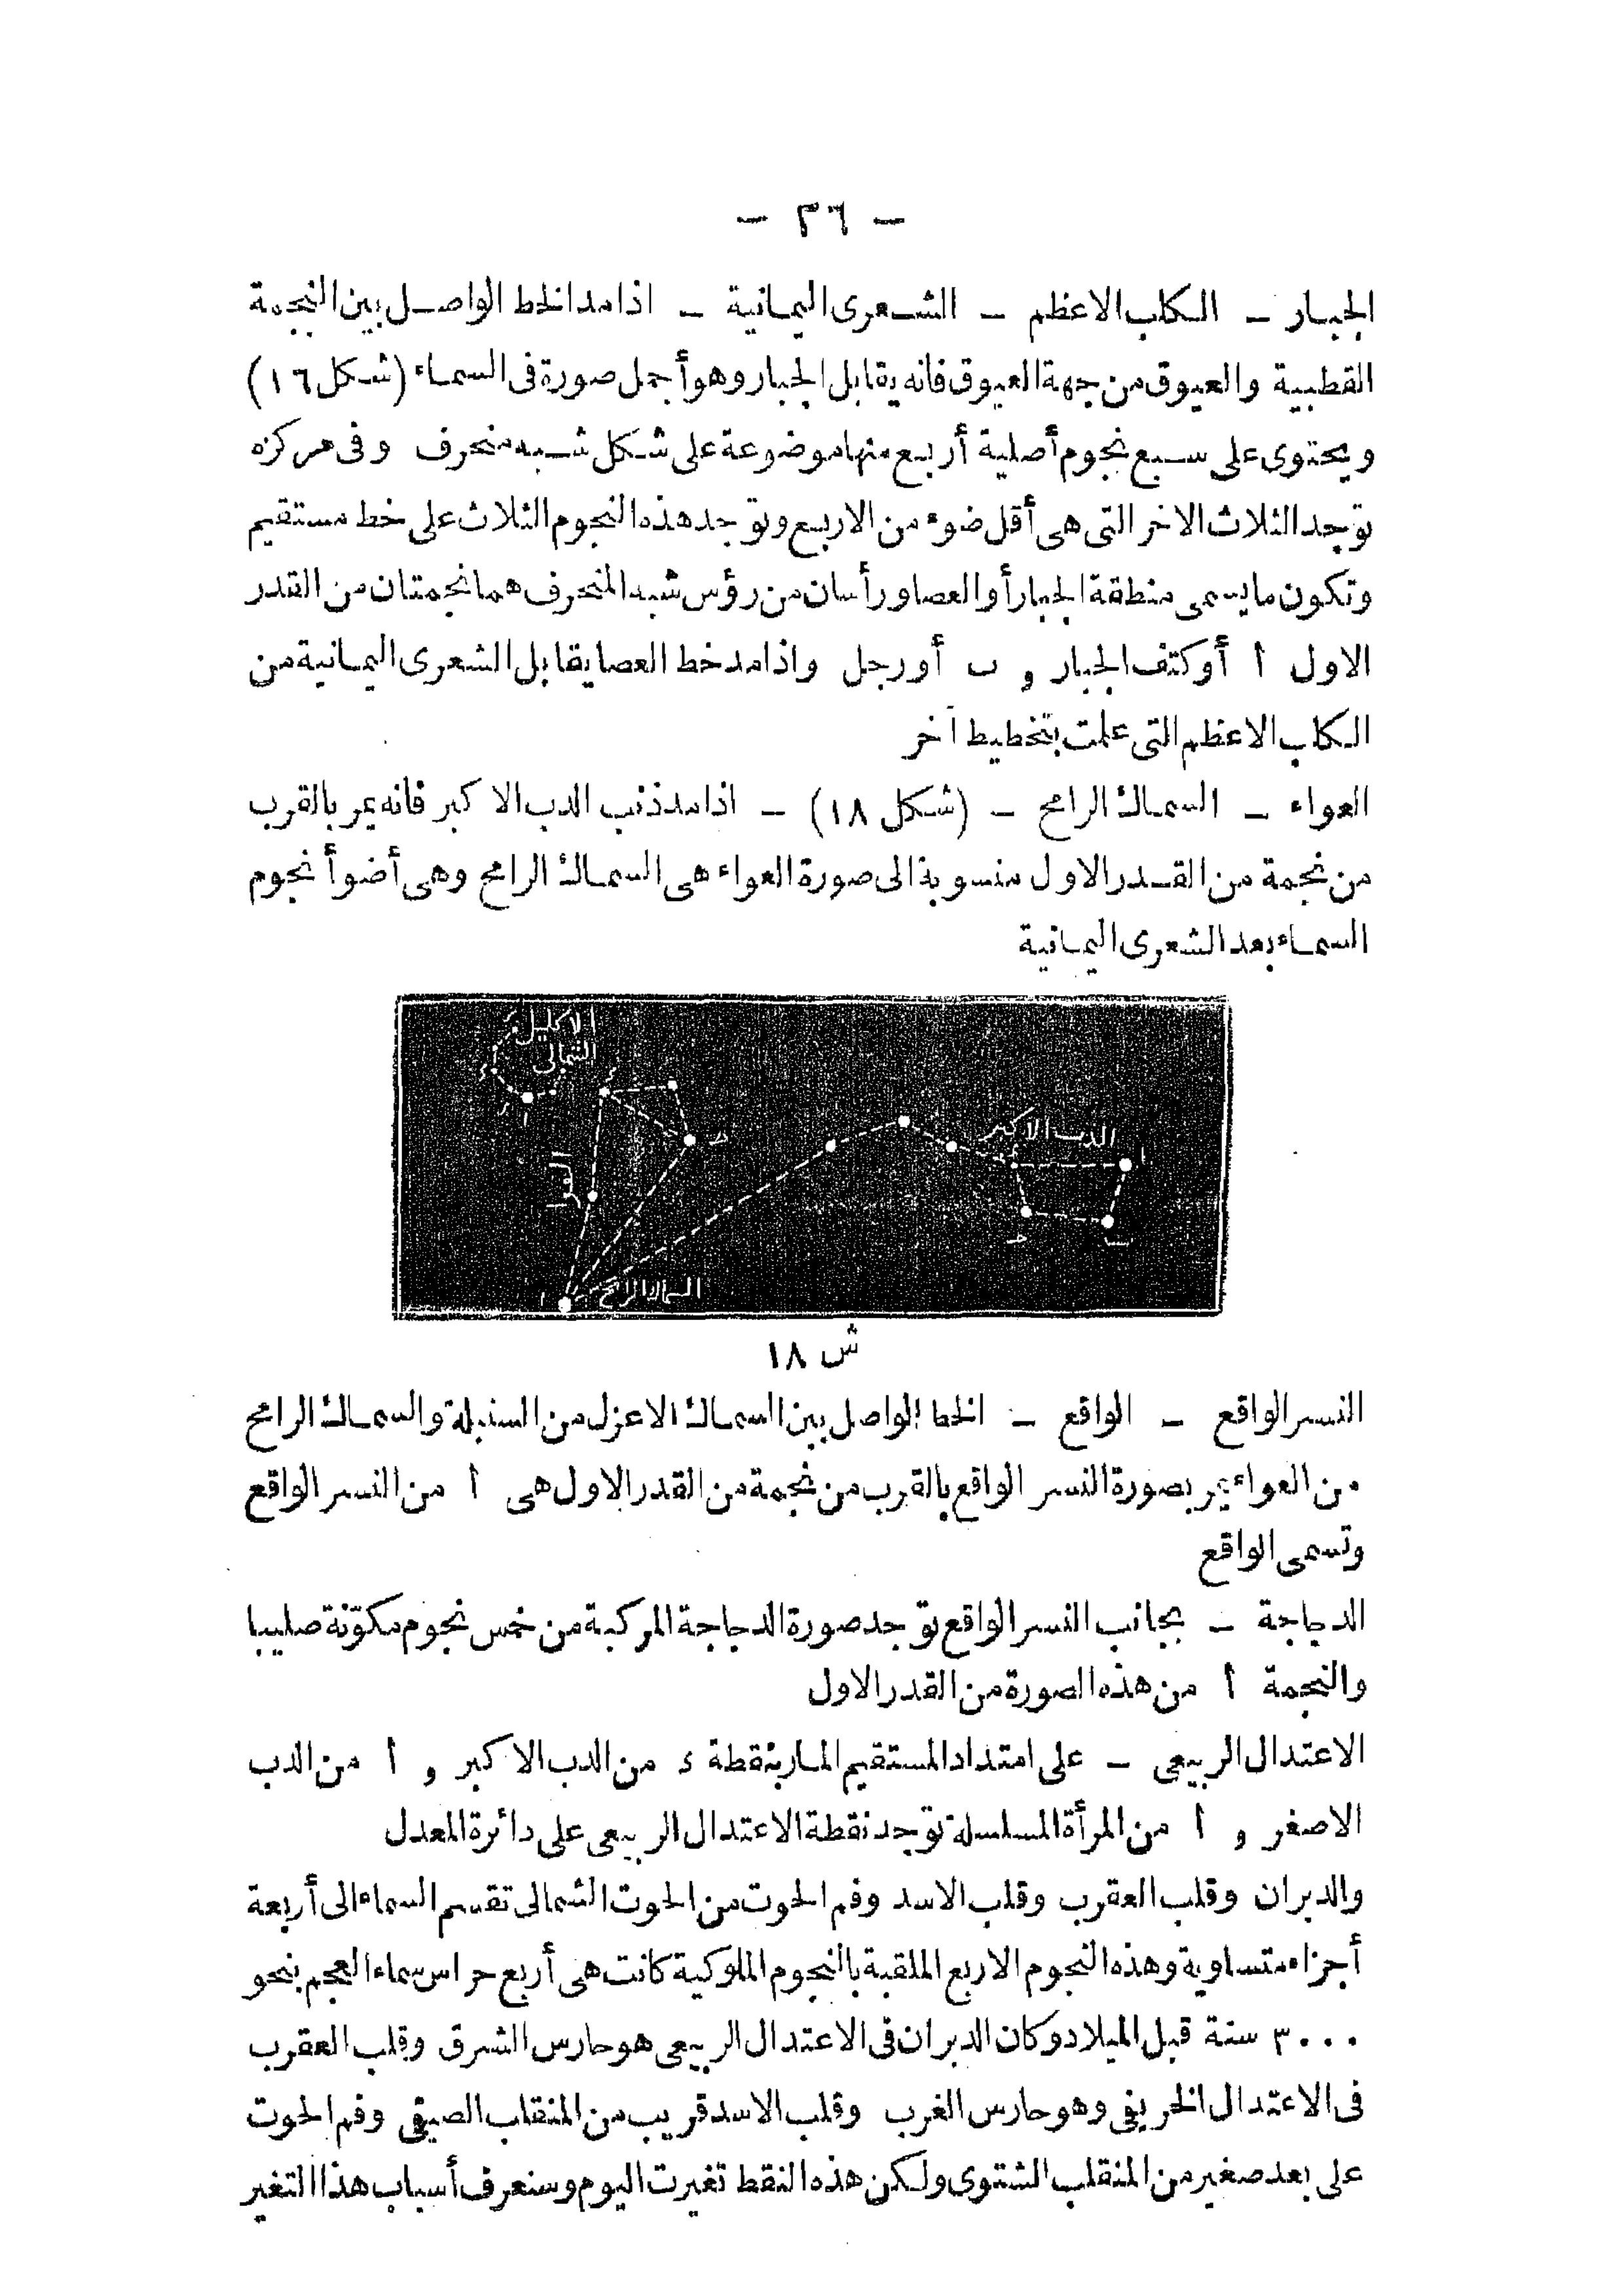 — ٣٦ —
الجبار — الكلب الاعظم — الشعرى اليمانية — اذا مد الخط الواصل بين النجمة
القطبية والعيوق من جهة العيوق فانه يقابل الجبار وهو أجمل صورة فى السماء (شكل ١٦)
ويحتوى على سبع نجوم أصلية أربع منها موضوعة على شكل شبه منحرف وفى مركزه
توجد الثلاث الاخر التى هى أقل ضوء من الاربع وتوجد هذه النجوم الثلاث على خط مستقيم
وتكون ما يسمى منطقة الجبار أو العصا ورأسان من رؤس شبه المنحرف هما نجمتان من القدر
الاول أ أو كتف الجبار و ب أو رجل واذا مد خط العصا يقابل الشعرى اليمانية من
الكلب الاعظم التى علمت بتخطيط آخر
العواء — السماك الرامح — (شكل ١٨) — اذا مد ذنب الدب الاكبر فانه يمر بالقرب
من نجمة من القدر الاول منسوبة الى صورة العواء هى السماك الرامح وهى أضوأ نجوم
السماء بعد الشعرى اليمانية
الاكليل
الشمالى
ء
ء
ا
ء
حـ
الدب الاكبر
ء
ا
العواء
حـ
ب
السماك الرامح
ا
ش ١٨
النسر الواقع — الواقع — الخط الواصل بين السماك الاعزل من السنبلة والسماك الرامح
من العواء يمر بصورة النسر الواقع بالقرب من نجمة من القدر الاول هى أ من النسر الواقع
وتسمى الواقع
الدجاجة — بجانب النسر الواقع توجد صورة الدجاجة المركبة من خمس نجوم مكوّنة صليبا
والنجمة أ من هذه الصورة من القدر الاول
الاعتدال الربيعى — على امتداد المستقيم المار بنقطة ء من الدب الاكبر و أ من الدب
الاصغر و أ من المرأة المسلسلة توجد نقطة الاعتدال الربيعى على دائرة المعدل
والدبران وقلب العقرب وقلب الاسد وفم الحوت من الحوت الشمالى تقسم السماء الى أربعة
أجزاء متساوية وهذه النجوم الاربع الملقبة بالنجوم الملوكية كانت هى أربع حراس سماء العجم بنحو
٣٠٠٠ سنة قبل الميلاد وكان الدبران فى الاعتدال الربيعى هو حارس الشرق وقلب العقرب
فى الاعتدال الخريفى وهو حارس الغرب وقلب الاسد قريب من المنقلب الصيفى وفم الحوت
على بعد صغير من المنقلب الشتوى ولكن هذه النقط تغيرت اليوم وسنعرف أسباب هذا التغير